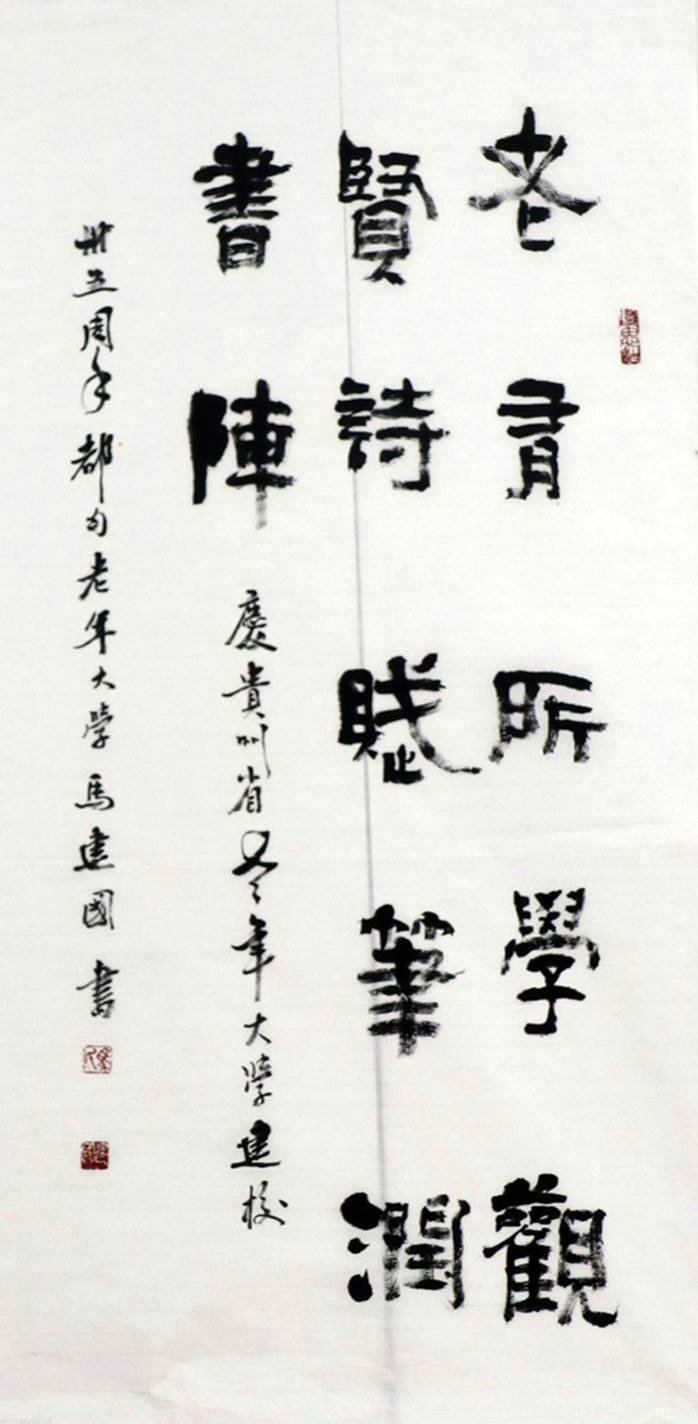 老有所學觀
賢詩賦筆潤
書陣
慶貴州省老年大學建校
卅五周年都匀老年大學馬建國書